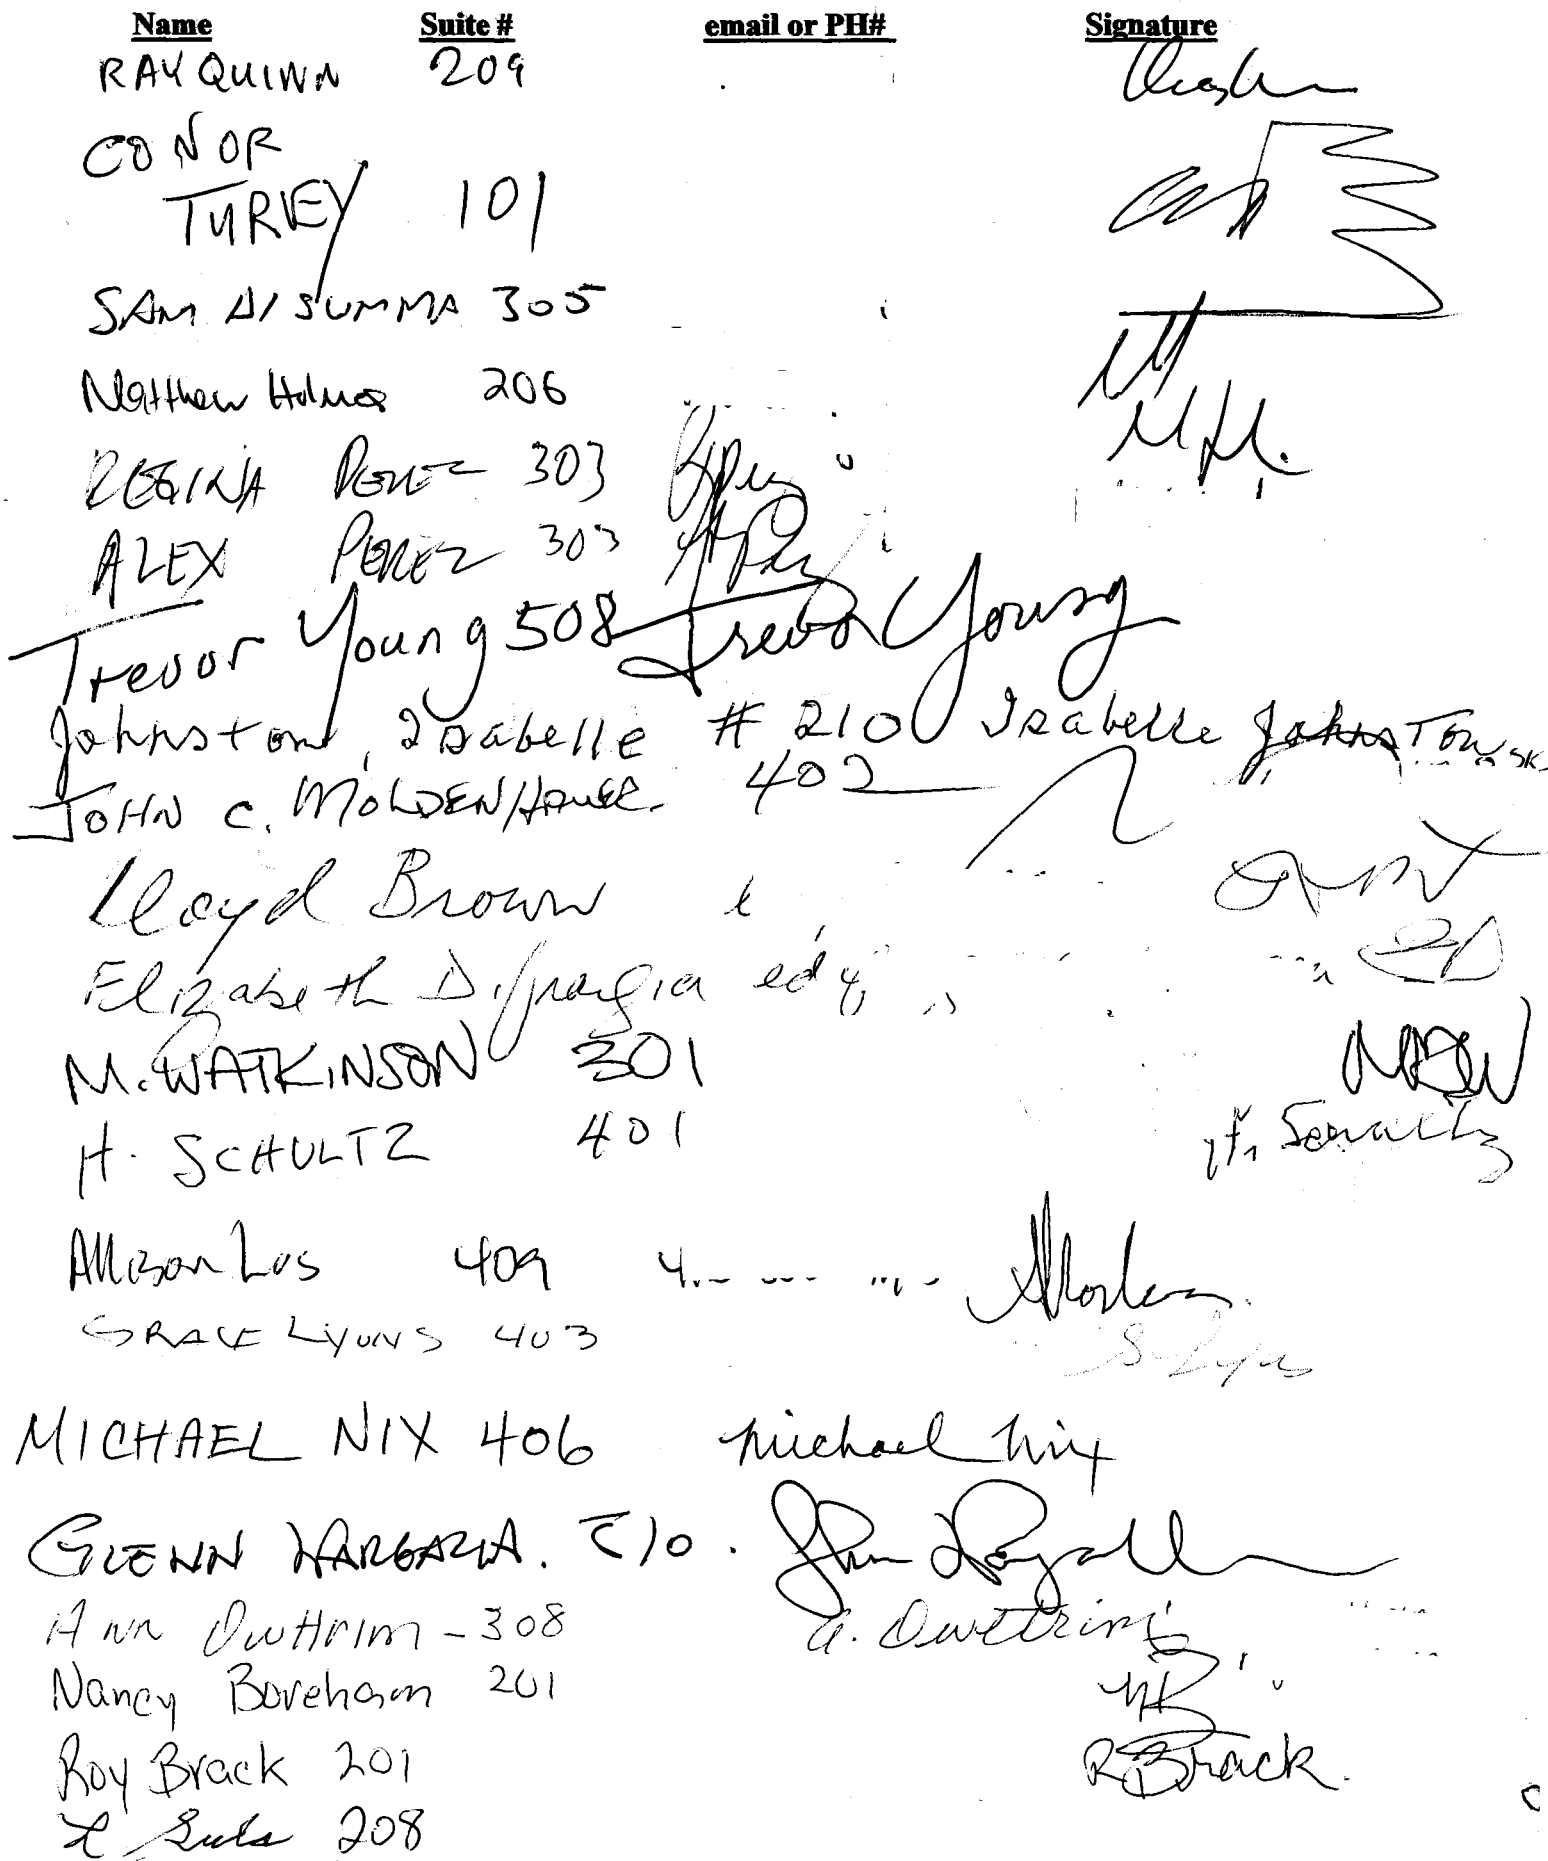 Name Suite # email or PH# Signature
RAY QUINN 209
CONOR
TURVEY 101
SAM DISUMMA 305
Matthew Holmes 206 M.H.
REGINA PEREZ 303 RPerez
ALEX PEREZ 303 APerez
Trevor Young 508 Trevor Young
Johnston, Isabelle # 210 Isabelle Johnston
JOHN C. MOLDENHAUER. 402
Lloyd Brown
Elizabeth
M. WATKINSON 301
H. SCHULTZ 401 H. Schultz
Allison Los 409
GRACE LYONS 403 G Lyons
MICHAEL NIX 406 Michael Nix
GLENN
Ann Owttrim - 308 A. Owttrim
Nancy Boreham 201 NB
Roy Brack 201 R Brack.
208